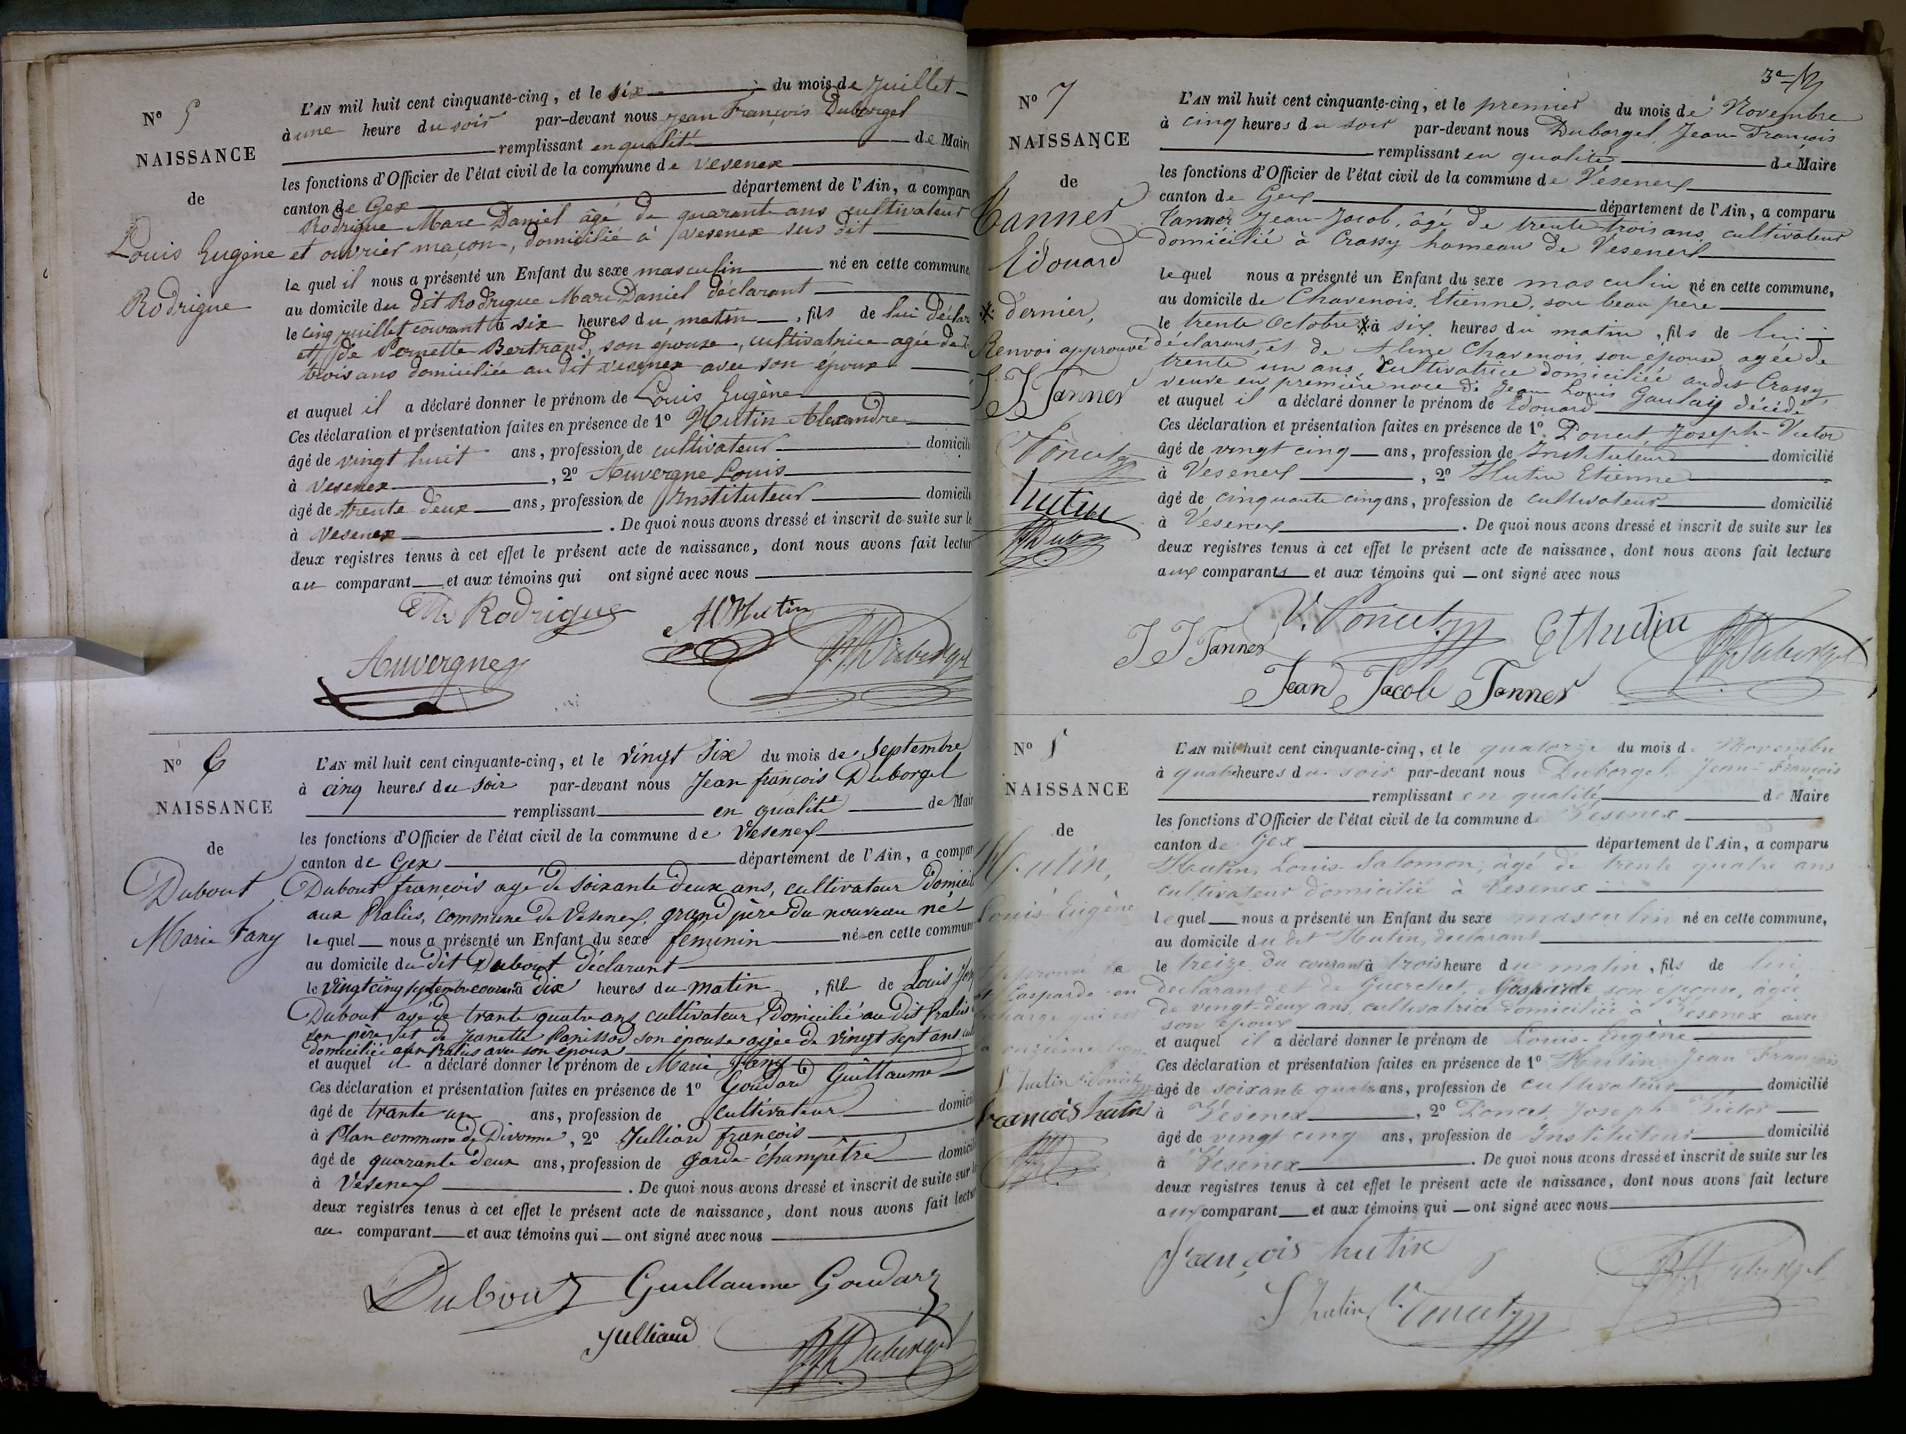 N° 5
NAISSANCE
de
Louis Eugène
Rodrigue
L'AN mil huit cent cinquante-cinq, et le six du mois de Juillet
à une heure du soir par-devant nous Jean François Duborgel
remplissant en qualité de Maire
les fonctions d'Officier de l'état civil de la commune de Vesenex
canton de Gex département de l'Ain, a comparu
Rodrigue Marc Daniel âgé de quarante ans cultivateur
et ouvrier maçon, domicilié à Vesenex sus dit
le quel il nous a présenté un Enfant du sexe masculin né en cette commune,
au domicile du dit Rodrigue Marc Daniel déclarant
le cinq juillet courant à six heures du matin, fils de lui déclar
et de Pernette Bertrand, son épouse, cultivatrice agée de
trois ans domiciliée au dit vesenex avec son époux
et auquel il a déclaré donner le prénom de Louis Eugène
Ces déclaration et présentation faites en présence de 1° Hutin Alexandre
âgé de vingt huit ans, profession de cultivateur domicilié
à vesenex, 2° Auvergne Louis
âgé de trente deux ans, profession de Instituteur domicilié
à Vesenex. De quoi nous avons dressé et inscrit de suite sur le
deux registres tenus à cet effet le présent acte de naissance, dont nous avons fait lectur
au comparant et aux témoins qui ont signé avec nous
Rodrigue
A Hutin
Auvergne
Duborgel
N° 6
NAISSANCE
de
Dubout
Marie Fany
L'AN mil huit cent cinquante-cinq, et le vingt six du mois de Septembre
à cinq heures du soir par-devant nous Jean françois Duborgel
remplissant en qualité de Mair
les fonctions d'Officier de l'état civil de la commune de Vesenex
canton de Gex département de l'Ain, a compar
Dubout françois agé de soixante deux ans, cultivateur domicil
aux Ralies, commune de Vesenex, grand père du nouveau né
le quel nous a présenté un Enfant du sexe feminin né en cette commun
au domicile du dit Dubout déclarant
le vingt cinq septembre courant à dix heures du matin, fille de Louis
Dubout agé de trante quatre ans cultivateur, Domicilié au dit Ralies
son père et de Jeanette Parissod son épouse agée de vingt sept ans
domiciliée aux Ralies avec son époux
et auquel il a déclaré donner le prénom de Marie Fany
Ces déclaration et présentation faites en présence de 1° Goudard Guillaume
âgé de trante un ans, profession de cultivateur domici
à Plan commune de Divonne, 2° Julliard françois
âgé de quarante deux ans, profession de garde-champêtre domici
à Vesenex. De quoi nous avons dressé et inscrit de suite sur
deux registres tenus à cet effet le présent acte de naissance, dont nous avons fait lectu
au comparant et aux témoins qui ont signé avec nous
Dubout Guillaume Goudard
Julliard
Duborgel
N° 7
NAISSANCE
de
Tanner
Edouard
dernier,
Renvoi approuvé
J J Tanner
V. Poncet
hutin
L'AN mil huit cent cinquante-cinq, et le premier du mois de Novembre
à cinq heures du soir par-devant nous Duborgel Jean-François
remplissant en qualité de Maire
les fonctions d'Officier de l'état civil de la commune de Vesenex
canton de Gex département de l'Ain, a comparu
Tanner Jean-Jacob, âgé de trente trois ans, cultivateur
domicilié à Crassy hameau de Vesenex
le quel nous a présenté un Enfant du sexe masculin né en cette commune,
au domicile de Chavenois, Etienne, son beau père
le trente Octobre à six heures du matin, fils de lui
déclarant, et de Aline Chavenois, son épouse, agée de
trente un ans, cultivatrice domiciliée au dit Crassy,
veuve en première noce de Jean Louis Gaulay décédé
et auquel il a déclaré donner le prénom de Edouard
Ces déclaration et présentation faites en présence de 1° Poncet, Joseph-Victor
âgé de vingt cinq ans, profession de Instituteur domicilié
à Vesenex, 2° Hutin Etienne
âgé de cinquante cinq ans, profession de cultivateur domicilié
à Vesenex. De quoi nous avons dressé et inscrit de suite sur les
deux registres tenus à cet effet le présent acte de naissance, dont nous avons fait lecture
aux comparants et aux témoins qui ont signé avec nous
V. Poncet Et hutin
J J Tanner Duborgel
Jean Jacob Tanner
N° 8
NAISSANCE
de
Hutin,
Louis-Eugène
François hutin
L'AN mil huit cent cinquante-cinq, et le quatorze du mois de Novembre
à quatre heures du soir par-devant nous Duborgel Jean-François
remplissant en qualité de Maire
les fonctions d'Officier de l'état civil de la commune de Vesenex
canton de Gex département de l'Ain, a comparu
Hutin, Louis-Salomon, âgé de trente quatre ans
cultivateur domicilié à Vesenex
lequel nous a présenté un Enfant du sexe masculin né en cette commune,
au domicile du dit Hutin, déclarant
le treize du courant à trois heure du matin, fils de lui
déclarant et de Guerchet, Gasparde son épouse, agée
de vingt-deux ans, cultivatrice domiciliée à Vesenex avec
son époux
et auquel il a déclaré donner le prénom de Louis-Eugène
Ces déclaration et présentation faites en présence de 1° Hutin Jean François
âgé de soixante quatre ans, profession de cultivateur domicilié
à Vesenex, 2° Poncet, Joseph Victor
âgé de vingt cinq ans, profession de Instituteur domicilié
à Vesenex. De quoi nous avons dressé et inscrit de suite sur les
deux registres tenus à cet effet le présent acte de naissance, dont nous avons fait lecture
aux comparant et aux témoins qui ont signé avec nous
François hutin
S hutin V. Poncet
Duborgel